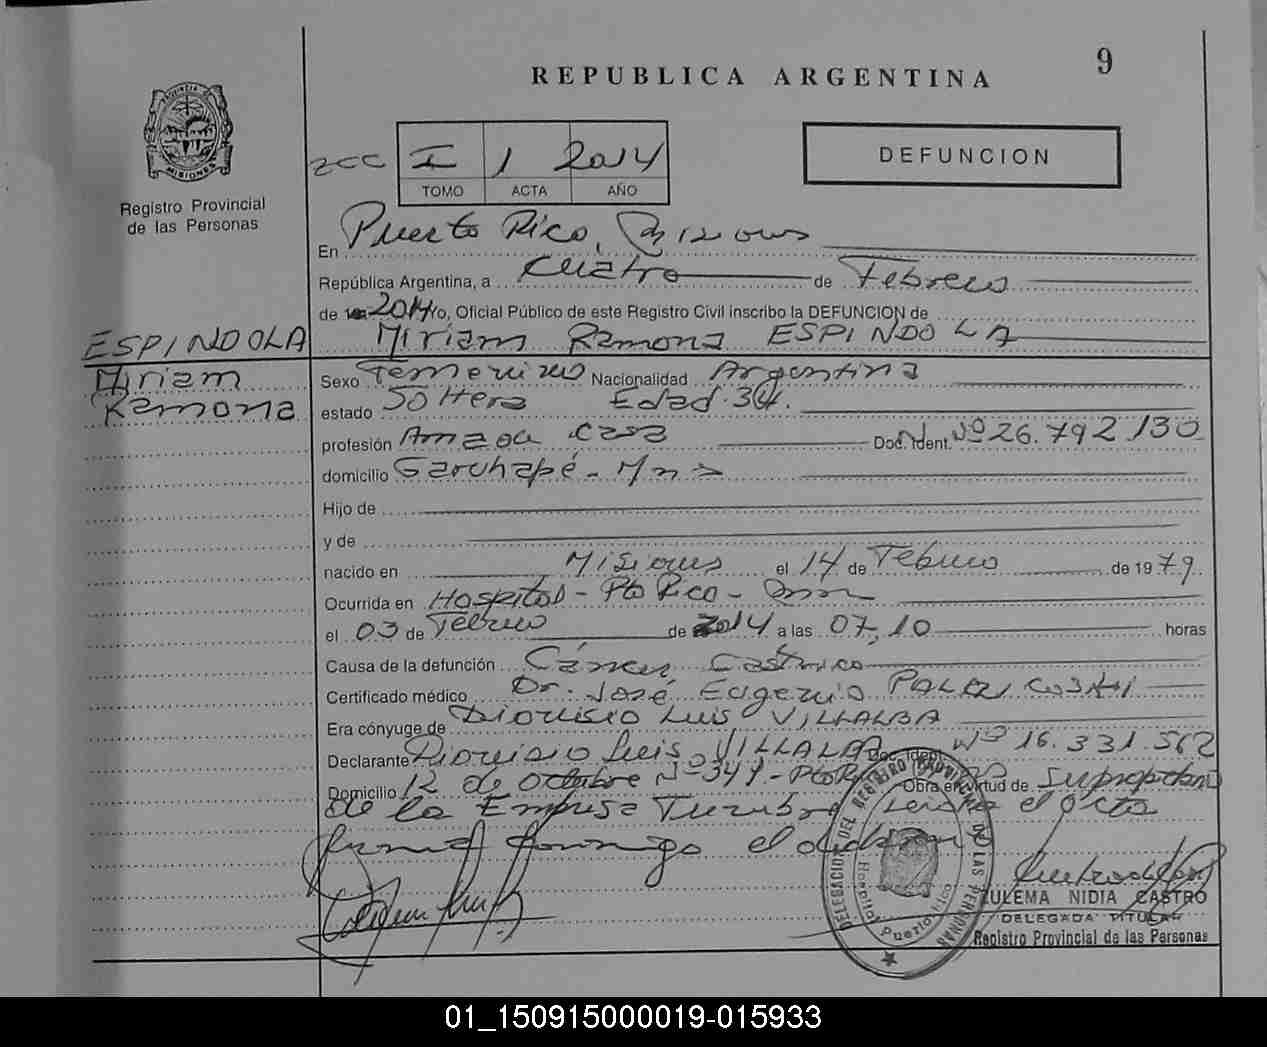 9
REPUBLICA ARGENTINA
PROVINCIA DE MISIONES
Registro Provincial
de las Personas
I 1 2014
TOMO ACTA AÑO
DEFUNCION
En Puerto Rico, Misiones
República Argentina, a Cuatro de Febrero
de 2014 yo, Oficial Público de este Registro Civil inscribo la DEFUNCION de
ESPINDOLA Miriam Ramona ESPINDOLA
Miriam Sexo Femenino Nacionalidad Argentina
Ramona estado Soltera Edad 34.
profesión Ama de casa Doc. Ident. Nº 26.792.130
domicilio Garuhapé - Mnes
Hijo de
y de
nacido en Misiones el 14 de Febrero de 1979
Ocurrida en Hospital - Pto Rico -
el 03 de Febrero de 2014 a las 07,10 horas
Causa de la defunción Cáncer Gástrico
Certificado médico Dr. José Eugenio
Era cónyuge de Dionisio Luis VILLALBA
Declarante Dionisio Luis VILLALBA Doc. Ident. Nº 16.331.562
Domicilio 12 de Octubre Nº 344 - Pto Obra en virtud de su
de la Empresa el acta
firma conmigo el
DELEGACION DEL REGISTRO PROVINCIAL DE LAS PERSONAS
Hospital Puerto Rico
ZULEMA NIDIA CASTRO
DELEGADA TITULAR
Registro Provincial de las Personas
01_150915000019-015933